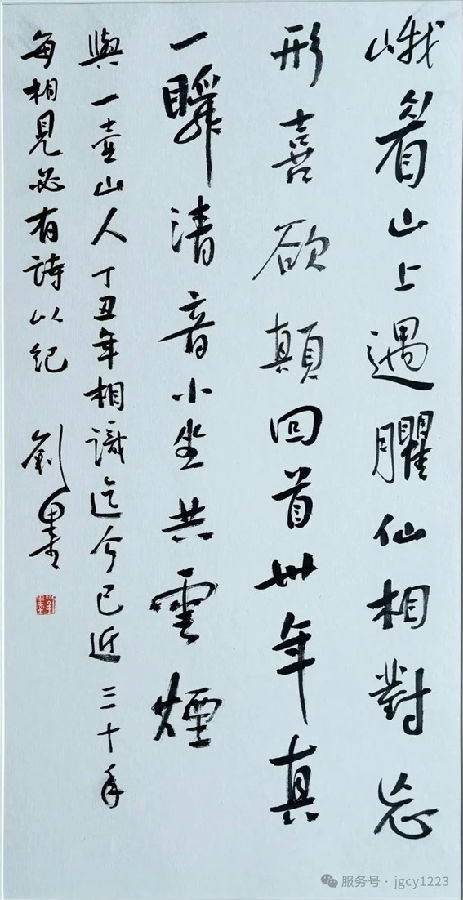 峨眉山上遇臞仙相對忘
形喜欲顛回首卅年真
一瞬清音小坐共雲煙
與一壺山人丁丑年相識迄今已近二十年
每相見必有詩以紀
劉墨
服务号·jgcy1223